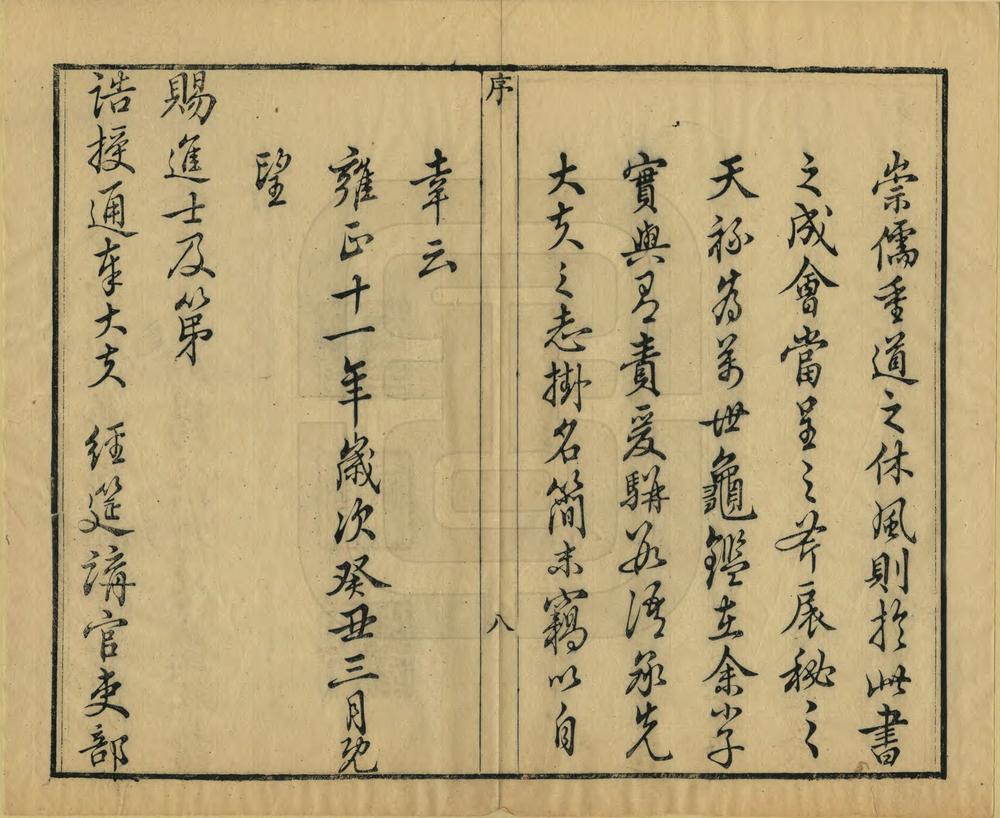 崇儒重道之休風則於此書
之成會當呈之斧扆秘之
天祿為萬世龜鑑在余小子
實與有責爰駢數語承先
大夫之志掛名簡末竊以自
序
八
幸云
雍正十一年歲次癸丑三月既
望
賜進士及第
誥授通奉大夫 經筵講官吏部